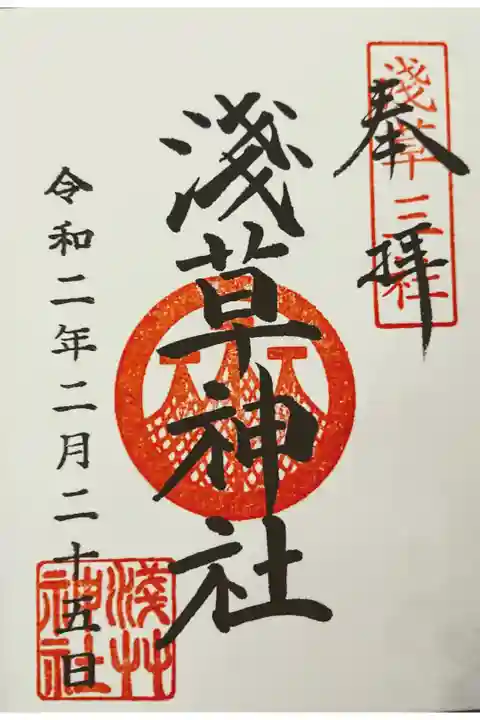 奉拝
淺草三社
淺草神社
令和二年二月二十五日
淺艸
神社